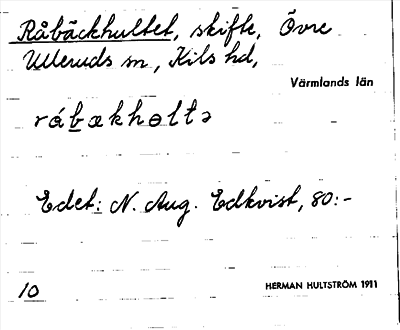 Råbäckhultet, skifte, Övre
Ulleruds sn, Kils hd,
Värmlands län
råbækholtə
Edet: N. Aug. Edkvist, 80:-
10
HERMAN HULTSTRÖM 1911